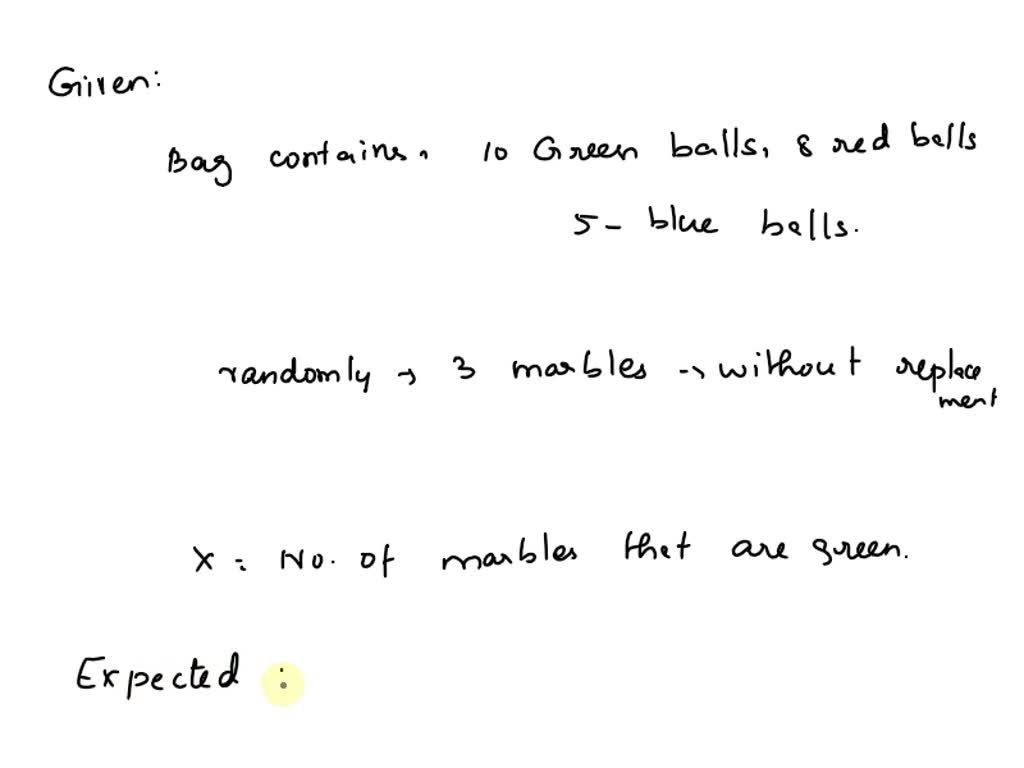 Given:
Bag contains. 10 Green balls, 8 red balls
5 - blue balls.
randomly → 3 marbles → without replace
ment
X = No. of marbles that are green.
Expected :